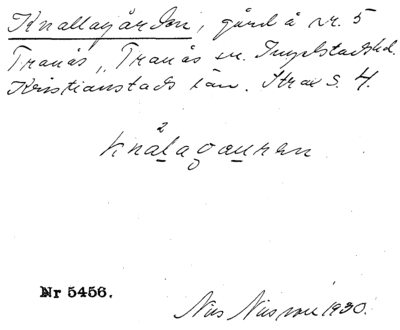 Knallagården, gård å nr. 5
Tranås, Tranås sn. Ingelstads hd.
Kristianstads län. Strax s. 4.
2
knalagauren
Nr 5456.
Nils Nilsson 1930.